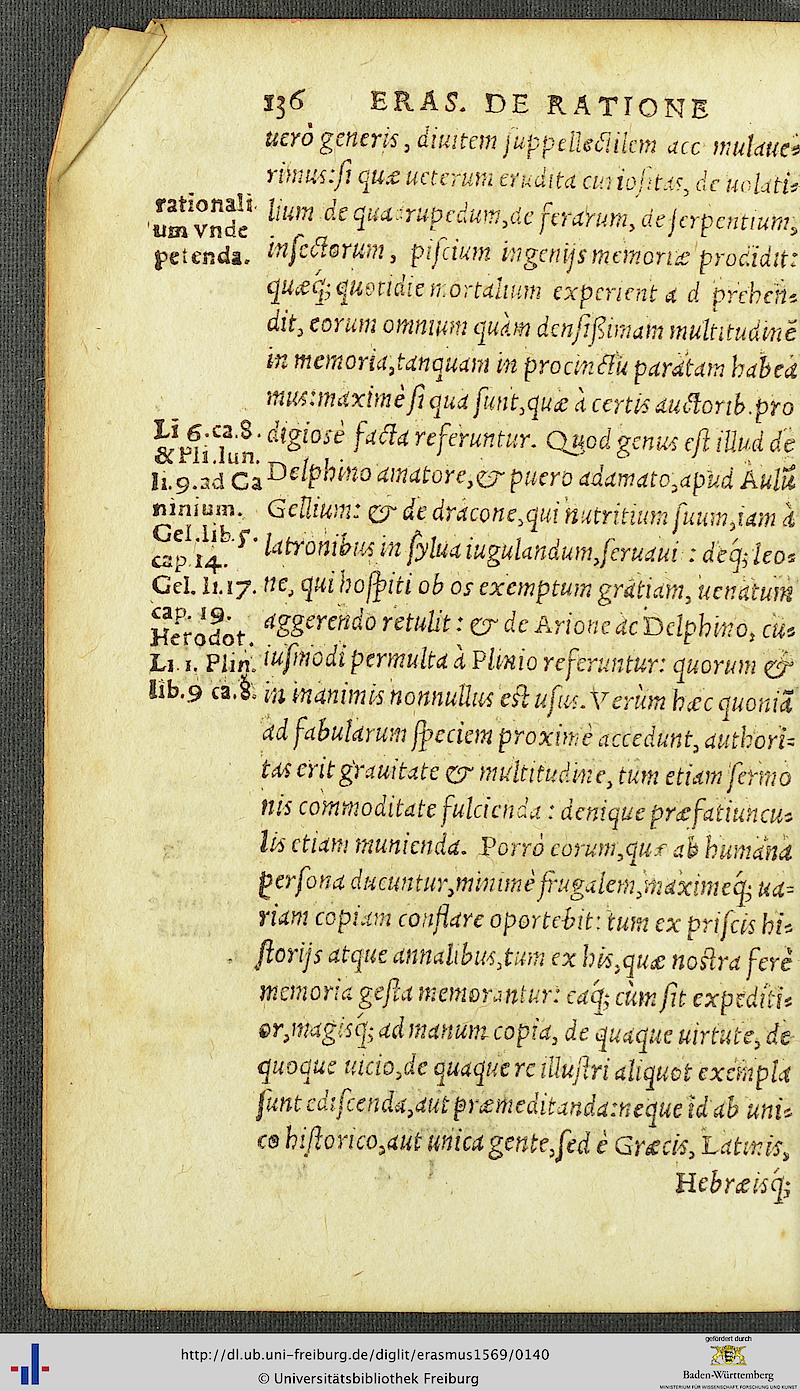 136 ERAS. DE RATIONE
uerò generis, diuitem suppellectilem acc mulaue-
rimus: si quæ ueterum erudita curiositas, de uolati-
lium de quadrupedum, de ferarum, de serpentium,
insectorum, piscium ingenijs memoriæ prodidit:
quæq́; quotidie mortalium experient a d prehen-
dit, eorum omnium quàm densißimam multitudinē
in memoria, tanquam in procinctu paratam habea
mus: maximè si qua sunt, quæ à certis auctorib. pro
digiosè facta referuntur. Quod genus est illud de
Delphino amatore, & puero adamato, apud Aulū
Gellium: & de dracone, qui nutritium suum, iam à
latronibus in sylua iugulandum, seruaui : deq́; leo-
ne, qui hospiti ob os exemptum gratiam, uenatum
aggerendo retulit: & de Arione ac Delphino, cu-
iusmodi permulta à Plinio referuntur: quorum &
in inanimis nonnullus est usus. Verùm hæc quoniā
ad fabularum speciem proximè accedunt, authori-
tas erit grauitate & multitudine, tum etiam sermo
nis commoditate fulcienda: denique præfatiuncu-
lis etiam munienda. Porrò eorum, quæ ab humana
persona ducuntur, minimè frugalem, maximeq́; ua-
riam copiam conflare oportebit: tum ex priscis hi-
storijs atque annalibus, tum ex his, quæ nostra ferè
memoria gesta memorantur: eaq́; cùm sit expediti-
or, magisq́; ad manum copia, de quaque uirtute, de
quoque uicio, de quaque re illustri aliquot exempla
sunt ediscenda, aut præmeditanda: neque id ab uni-
co historico, aut unica gente, sed è Græcis, Latinis,
Hebræisq́;
rationali
um vnde
petenda.
Li 6. ca. 8.
& Pli. Iun.
li. 9. ad Ca
ninium.
Gel. lib. 5.
cap. 14.
Gel. li. 17.
cap. 19.
Herodot.
Li. 1. Plin.
lib. 9 ca. 8.
http://dl.ub.uni-freiburg.de/diglit/erasmus1569/0140
© Universitätsbibliothek Freiburg
gefördert durch
Baden-Württemberg
MINISTERIUM FÜR WISSENSCHAFT, FORSCHUNG UND KUNST